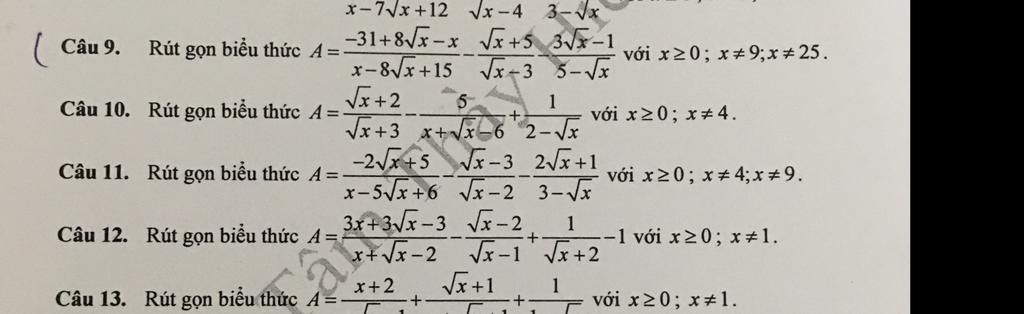 x−7√x+12 √x−4 3−√x
Câu 9. Rút gọn biểu thức A = (−31+8√x−x)/(x−8√x+15) − (√x+5)/(√x−3) − (3√x−1)/(5−√x) với x≥0; x≠9;x≠25.
Câu 10. Rút gọn biểu thức A = (√x+2)/(√x+3) − 5/(x+√x−6) + 1/(2−√x) với x≥0; x≠4.
Câu 11. Rút gọn biểu thức A = (−2√x+5)/(x−5√x+6) − (√x−3)/(√x−2) − (2√x+1)/(3−√x) với x≥0; x≠4;x≠9.
Câu 12. Rút gọn biểu thức A = (3x+3√x−3)/(x+√x−2) − (√x−2)/(√x−1) + 1/(√x+2) −1 với x≥0; x≠1.
Câu 13. Rút gọn biểu thức A = x+2 + √x+1 + 1 với x≥0; x≠1.
Tâm Thầy